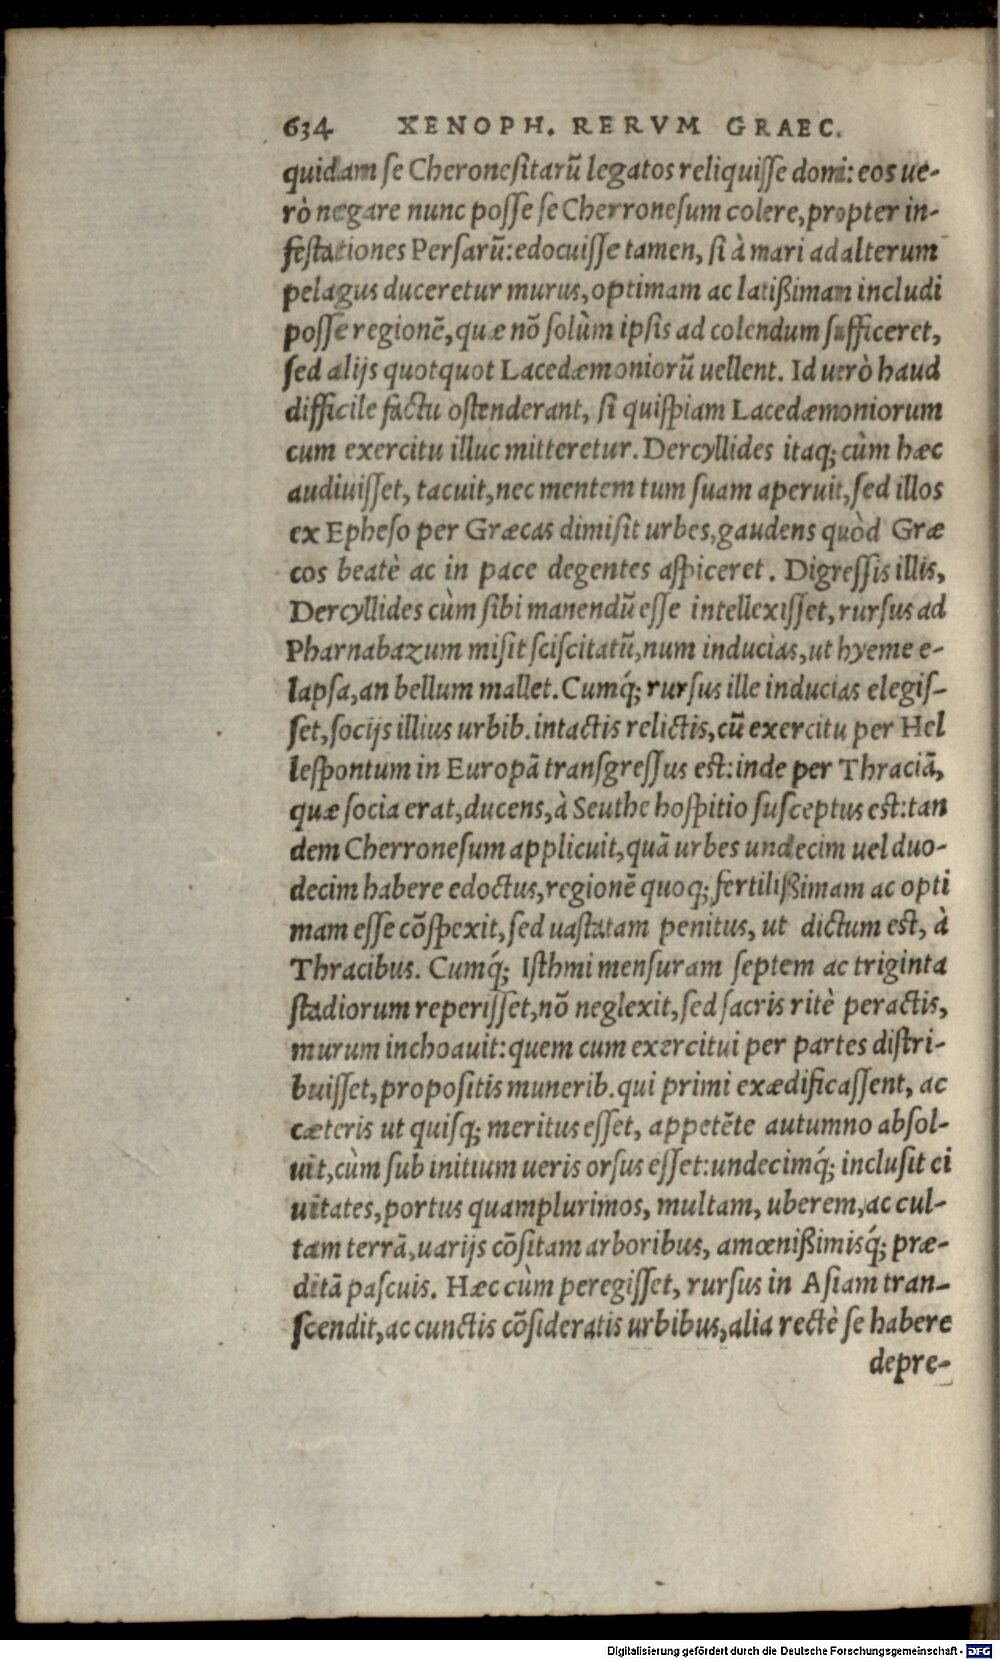 634 XENOPH. RERVM GRAEC.
quidam se Cheronesitarũ legatos reliquisse domi: eos ue-
rò negare nunc posse se Cherronesum colere, propter in-
festationes Persarũ: edocuisse tamen, si à mari ad alterum
pelagus duceretur murus, optimam ac latißimam includi
posse regionẽ, quæ nõ solùm ipsis ad colendum sufficeret,
sed alijs quotquot Lacedæmoniorũ uellent. Id uerò haud
difficile factu ostenderant, si quispiam Lacedæmoniorum
cum exercitu illuc mitteretur. Dercyllides itaq; cùm hæc
audiuisset, tacuit, nec mentem tum suam aperuit, sed illos
ex Epheso per Græcas dimisit urbes, gaudens quòd Græ
cos beatè ac in pace degentes aspiceret. Digressis illis,
Dercyllides cùm sibi manendũ esse intellexisset, rursus ad
Pharnabazum misit sciscitatũ, num inducias, ut hyeme e-
lapsa, an bellum mallet. Cumq́; rursus ille inducias elegis-
set, socijs illius urbib. intactis relictis, cũ exercitu per Hel
lespontum in Europã transgressus est: inde per Thraciã,
quæ socia erat, ducens, à Seuthe hospitio susceptus est: tan
dem Cherronesum applicuit, quã urbes undecim uel duo-
decim habere edoctus, regionẽ quoq; fertilißimam ac opti
mam esse cõspexit, sed uastatam penitus, ut dictum est, à
Thracibus. Cumq́; Isthmi mensuram septem ac triginta
stadiorum reperisset, nõ neglexit, sed sacris ritè peractis,
murum inchoauit: quem cum exercitui per partes distri-
buisset, propositis munerib. qui primi exædificassent, ac
cæteris ut quisq; meritus esset, appetẽte autumno absol-
uit, cùm sub initium ueris orsus esset: undecimq́; inclusit ci
uitates, portus quamplurimos, multam, uberem, ac cul-
tam terrã, uarijs cõsitam arboribus, amœnißimisq́; præ-
ditã pascuis. Hæc cùm peregisset, rursus in Asiam tran-
scendit, ac cunctis cõsideratis urbibus, alia rectè se habere
depre-
Digitalisierung gefördert durch die Deutsche Forschungsgemeinschaft - DFG